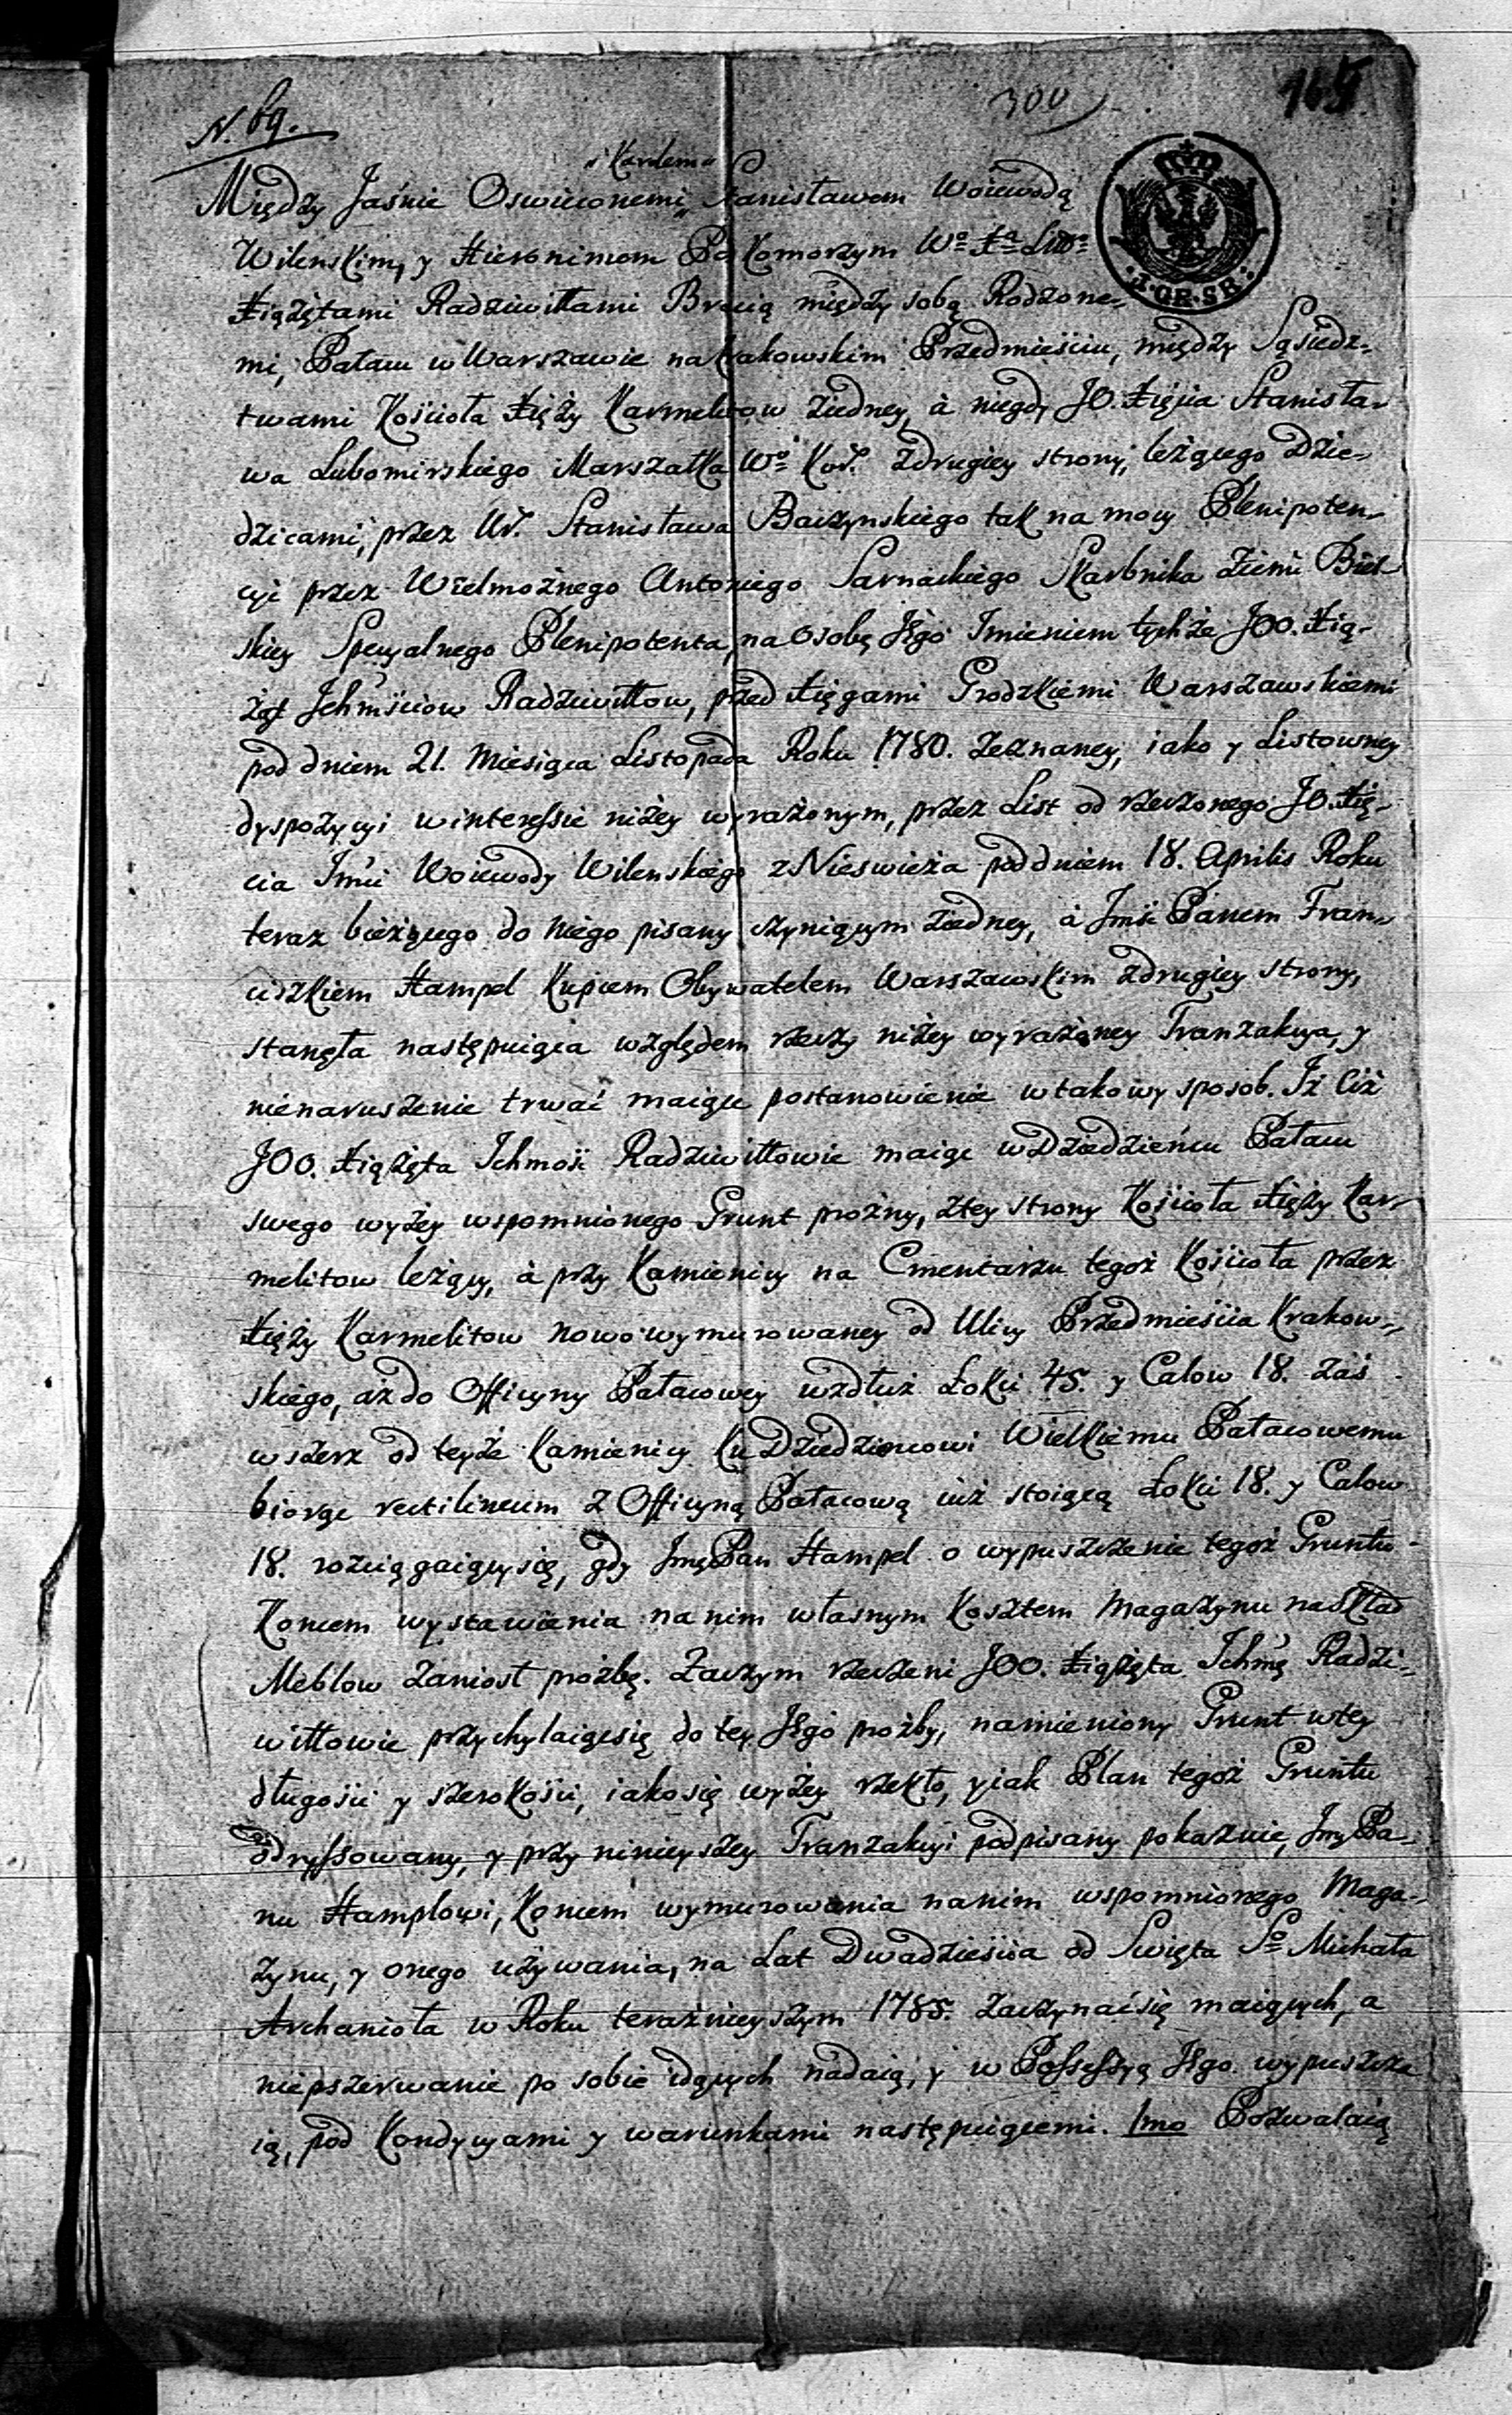 N. 69.
300
165
"Karolem"
Między Jaśnie Oswieconemi, Stanisławem Woiewodą
1.GR.SR.
Wilenskim, y Hieronimem Podkomorzym Wo Xa Litto
Xiążętami Radziwiłłami Bracią między sobą Rodzone-
mi, Pałacu w Warszawie na Krakowskim Przedmieściu, między Sąsiedz-
twami Kościoła Xięży Karmelitow z iedney, à niegdy JO. Xięcia Stanisła-
wa Lubomirskiego Marszałka Wo Kor. z drugiey strony, leżącego Dzie-
dzicami, przez Ur. Stanisława Baczynskiego tak na mocy Plenipoten-
cyi przez Wielmożnego Antoniego Sarnackiego Skarbnika Ziemi Biel-
skiey Specyalnego Plenipotenta, na osobę Jego Imieniem tychże JOO. Xią-
żąt Jchmściow Radziwiłłow, przed Xięgami Grodzkiemi Warszawskiemi
pod dniem 21. Miesiąca Listopada Roku 1780. zeznaney, iako y Listowney
dyspozycyi w interessie niżey wyrażonym, przez List od rzeczonego JO. Xię-
cia Jmći Woiewody Wilenskiego z Nieswieża pod dniem 18. Aprilis Roku
teraz bieżącego do niego pisany czyniącym z iedney, à Jmći Panem Fran-
ciszkiem Hampel Kupcem Obywatelem Warszawskim z drugiey strony,
stanęła następuiąca względem rzeczy niżey wyrażoney Tranzakcya, y
nienaruszenie trwać maiące postanowienie w takowy sposob. Iż Ciż
JOO. Xiążęta Ichmość Radziwiłłowie maiąc w Dziedzieńcu Pałacu
swego wyżey wspomnionego Grunt prożny, z tey strony Kościoła Xięży Kar-
melitow leżący, à przy Kamienicy na Cmentarzu tegoż Kościoła przez
Xięży Karmelitow nowo wymurowaney od Ulicy Przedmieścia Krakow-
skiego, aż do Officyny Pałacowey wzdłuż Łokci 45. y Calow 18. zaś
wszerz od teyże Kamienicy ku Dziedzincowi Wielkiemu Pałacowemu
biorąc rectilineum z Officyną Pałacową iuż stoiącą Łokci 18. y Calow
18. rozciągaiący się, gdy Jmć Pan Hampel o wypuszczenie tegoż Gruntu
Koncem wystawienia na nim własnym Kosztem Magazynu na Skład
Meblow zaniosł proźbę. Zaczym rzeczeni JOO. Xiążęta Ichmć Radzi-
wiłłowie przychylaiąc się do tey Jego proźby, namieniony Grunt w tey
długości y szerokości, iako się wyżey rzekło, y iak Plan tegoż Gruntu
odryssowany, y przy ninieyszey Tranzakcyi podpisany pokazuie, Jmć Pa-
nu Hamplowi, Koncem wymurowania na nim wspomnionego Maga-
zynu, y onego używania, na Lat Dwadzieścia od Święta So Michała
Archanioła w Roku teraźnieyszym 1785. zaczynać się maiących, a
nieprzerwanie po sobie idących nadaią, y w Possessyą Jego wypuszcza
ią, pod Kondycyami y warunkami następuiącemi. 1mo Pozwalaią